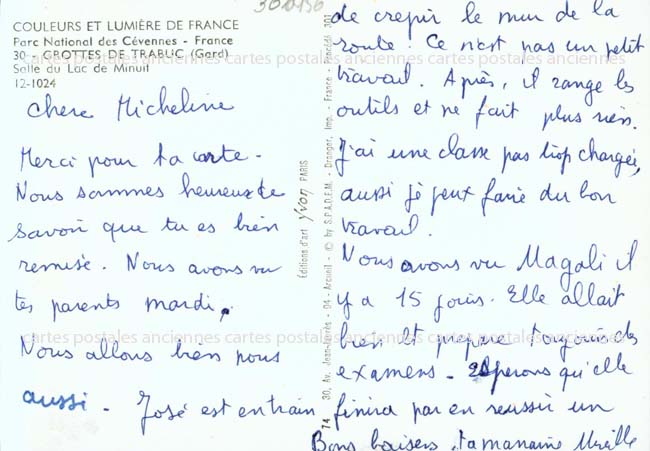 301036
COULEURS ET LUMIÈRE DE FRANCE
Parc National des Cévennes - France
30 - GROTTES DE TRABUC (Gard)
Salle du Lac de Minuit
12-1024
Chere Micheline
Merci pour ta carte.
Nous sommes heureux de
savoir que tu es bien
remise. Nous avons vu
tes parents mardi.
Nous allons bien nous
aussi. José est en train
Editions d'art yvon PARIS
74 30, Av. Jean-Jaurès - 94 - Arcueil - © by S.P.A.D.E.M. - Draeger, Imp. - France - Procédé 301
de crepir le mur de la
route. Ce n'est pas un petit
travail. Après, il range les
outils et ne fait plus rien.
J'ai une classe pas trop chargée,
aussi je peux faire du bon
travail.
Nous avons vu Magali il
y a 15 jours. Elle allait
bien et prepare toujours des
examens. Esperons qu'elle
finira par en reussir un
Bons baisers, ta marraine Mireille
cartes postales anciennes cartes postales anciennes cartes postales anciennes
cartes postales anciennes cartes postales anciennes cartes postales anciennes